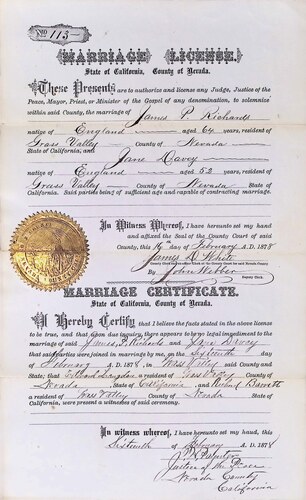 No 113
MARRIAGE LICENSE.
State of California, County of Nevada.
These Presents are to authorize and license any Judge, Justice of the
Peace, Mayor, Priest, or Minister of the Gospel of any denomination, to solemnize
within said County, the marriage of James P. Richards
native of England aged 64 years, resident of
Grass Valley County of Nevada
State of California, and Jane Davey
native of England aged 52 years, resident of
Grass Valley County of Nevada
State of California. Said parties being of sufficient age and capable of contracting marriage.
In Witness Whereof, I have hereunto set my hand
and affixed the Seal of the County Court of said
County, this 16 day of February A.D. 1878
James D. White
By John Webber
Deputy Clerk.
MARRIAGE CERTIFICATE.
State of California, County of Nevada.
I Hereby Certify that I believe the facts stated in the above license
to be true, and that upon due inquiry, there appears to be no legal impediment to the
marriage of said James P. Richards and Jane Davey
that said parties were joined in marriage by me, on the Sixteenth day
of February A.D. 1878, in Grass Valley said County and
State; that a resident of Grass Valley County of
Nevada State of California, and Richard Barrett
a resident of Grass Valley County of Nevada State of
California, were present as witnesses of said ceremony.
In Witness Whereof, I have hereunto set my hand, this
Sixteenth day of February A.D. 1878
Justice of the Peace
Nevada County
California